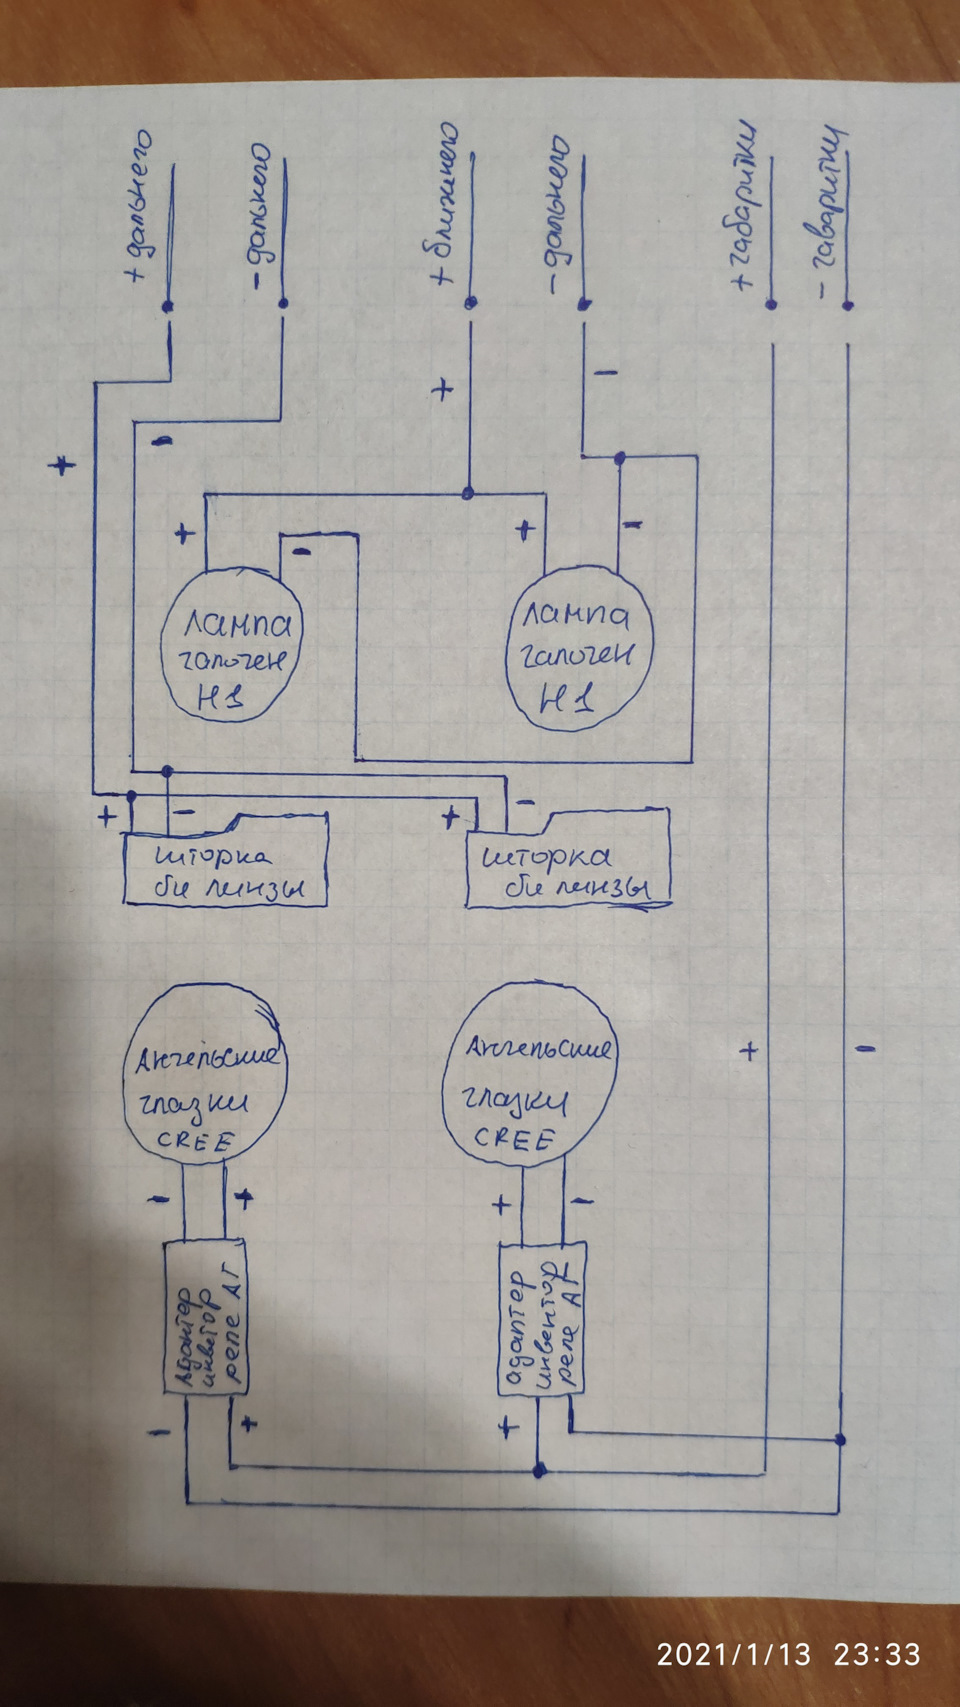 + дальнего
- дальнего
+ ближнего
- дальнего
+ габаритки
- гаваритку
+
-
+
-
+
-
+
-
Лампа
галоген
H1
Лампа
галоген
H1
+
-
+
-
шторка
би линзы
шторка
би линзы
Ангельские
глазки
CREE
Ангельские
глазки
CREE
+
-
-
+
+
-
Адаптер
реле АГ
адаптер
инвентор
реле АГ
-
+
+
2021/1/13 23:33